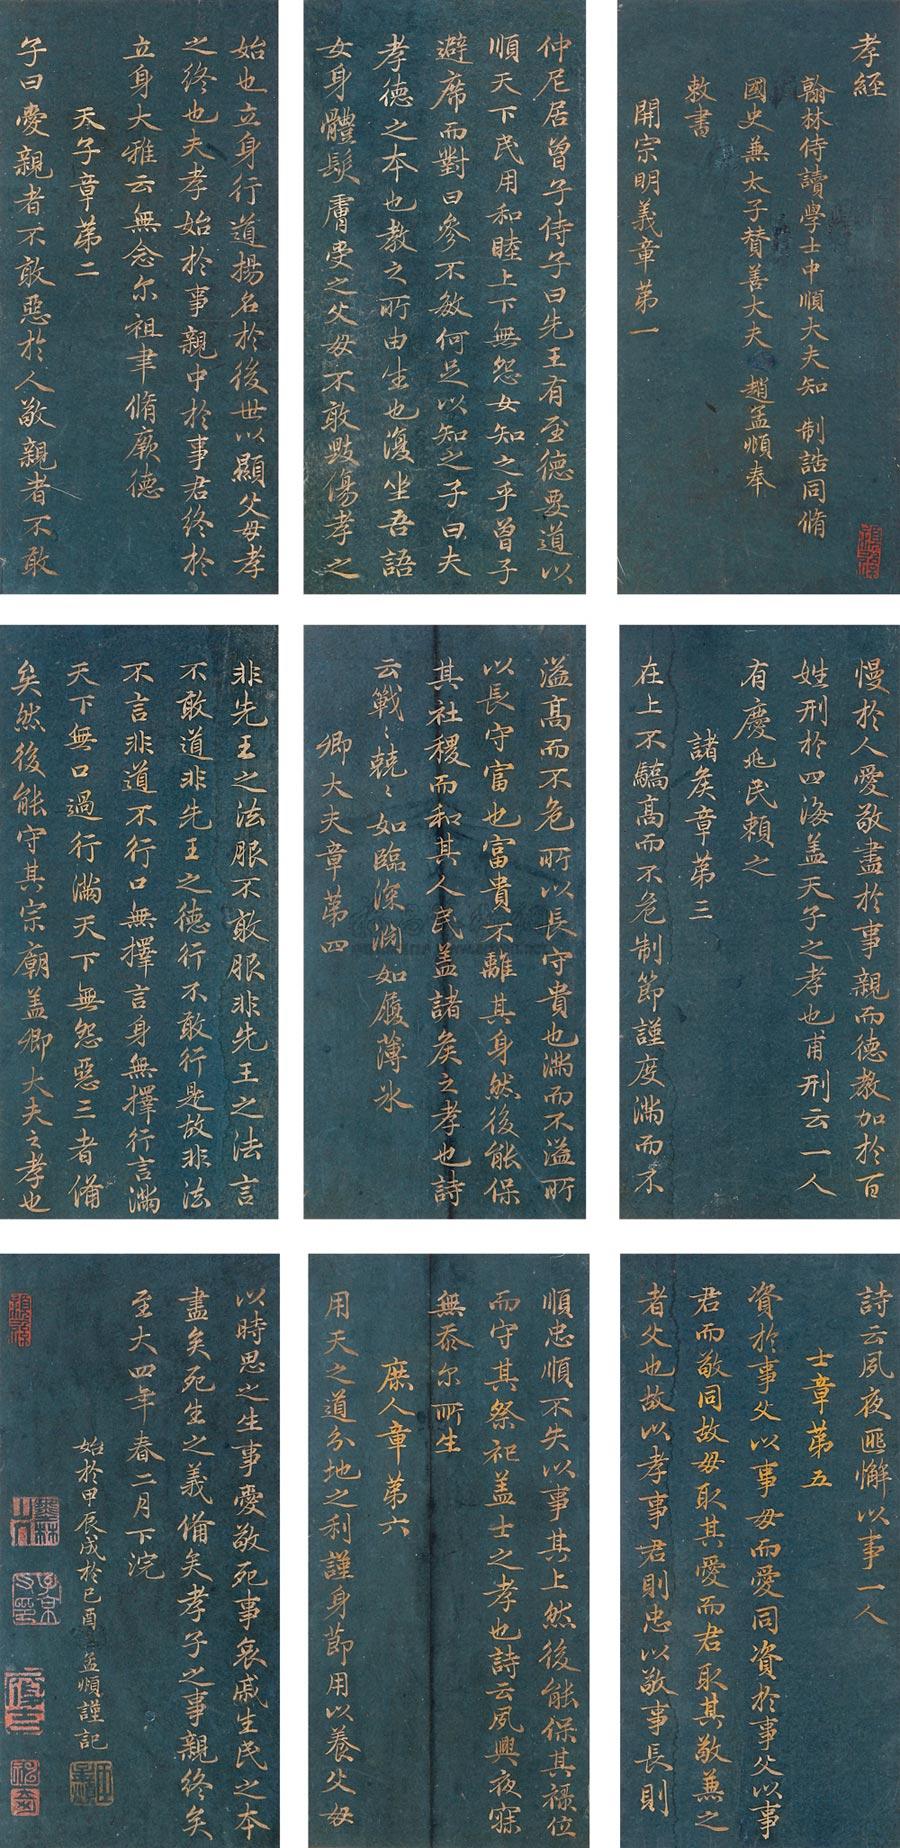 孝經
翰林侍讀學士中順大夫知 制誥同脩
國史兼太子賛善大夫 趙孟頫奉
敕書
開宗明義章第一
仲尼居曾子侍子曰先王有至德要道以
順天下民用和睦上下無怨女知之乎曾子
避席而對曰參不敏何足以知之子曰夫
孝德之本也教之所由生也復坐吾語
女身體髮膚受之父母不敢毀傷孝之
始也立身行道揚名於後世以顯父母孝
之終也夫孝始於事親中於事君終於
立身大雅云無念尔祖聿脩厥德
天子章第二
子曰愛親者不敢惡於人敬親者不敢
慢於人愛敬盡於事親而德教加於百
姓刑於四海盖天子之孝也甫刑云一人
有慶兆民賴之
諸矦章第三
在上不驕高而不危制節謹度滿而不
溢高而不危所以長守貴也滿而不溢所
以長守富也富貴不離其身然後能保
其社稷而和其人民盖諸矦之孝也詩
云戰〻兢〻如臨深淵如履薄冰
卿大夫章第四
非先王之法服不敢服非先王之法言
不敢道非先王之德行不敢行是故非法
不言非道不行口無擇言身無擇行言滿
天下無口過行滿天下無怨惡三者備
矣然後能守其宗廟盖卿大夫之孝也
詩云夙夜匪懈以事一人
士章第五
資於事父以事母而愛同資於事父以事
君而敬同故母取其愛而君取其敬兼之
者父也故以孝事君則忠以敬事長則
順忠順不失以事其上然後能保其祿位
而守其祭祀盖士之孝也詩云夙興夜寐
無忝尔所生
庶人章第六
用天之道分地之利謹身節用以養父母
以時思之生事愛敬死事哀戚生民之本
盡矣死生之義備矣孝子之事親終矣
至大四年春二月下浣
始於甲辰成於己酉 孟頫謹記